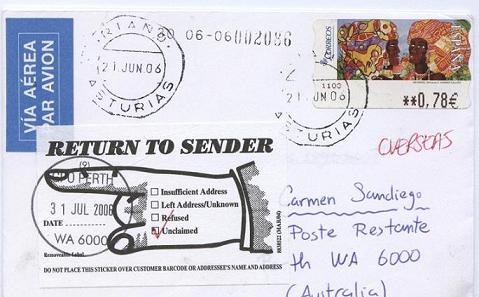 VÍA AÉREA
PAR AVION
21 JUN 06
ASTURIAS
30 06-06 002086
21 JUN 06
ASTURIAS
1100
CORREOS
ESPAÑA
**0,78€
OVERSEAS
RETURN TO SENDER
(9)
PERTH
31 JUL 2006
DATE
WA 6000
Insufficient Address
Left Address/Unknown
Refused
Unclaimed
Removable Label
DO NOT PLACE THIS STICKER OVER CUSTOMER BARCODE OR ADDRESSEE'S NAME AND ADDRESS
Carmen Sandiego
Poste Restante
th WA 6000
(Australia)